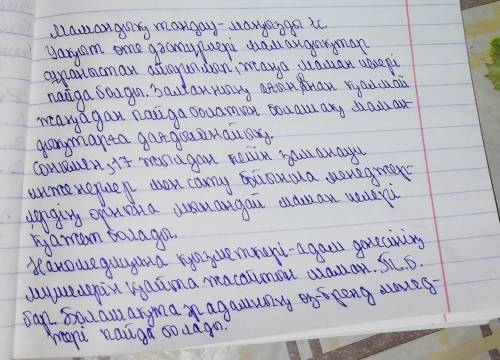 Мамандық таңдау-маңызды іс.
Уақыт өте дәстүрлі мамандықтар
сұраныстан айырылып, жаңа маман иелері
пайда болды. Заманның ағынынан қалмай
жаңадан пайда болатын болашақ маман-
дықтарға дағдыланайық.
Сонымен, 17 жылдан кейін заманауи
инженерлер мен сату бойынша менеджер-
лердің орнына мынандай маман иелері
қажет болады.
Наномедицина қызметкері-адам денесінің
мүшелерін қайта жасайтын маман. Т.б.
бар. Болашақта әр адамның өз-бренд менед-
жері пайда болады.